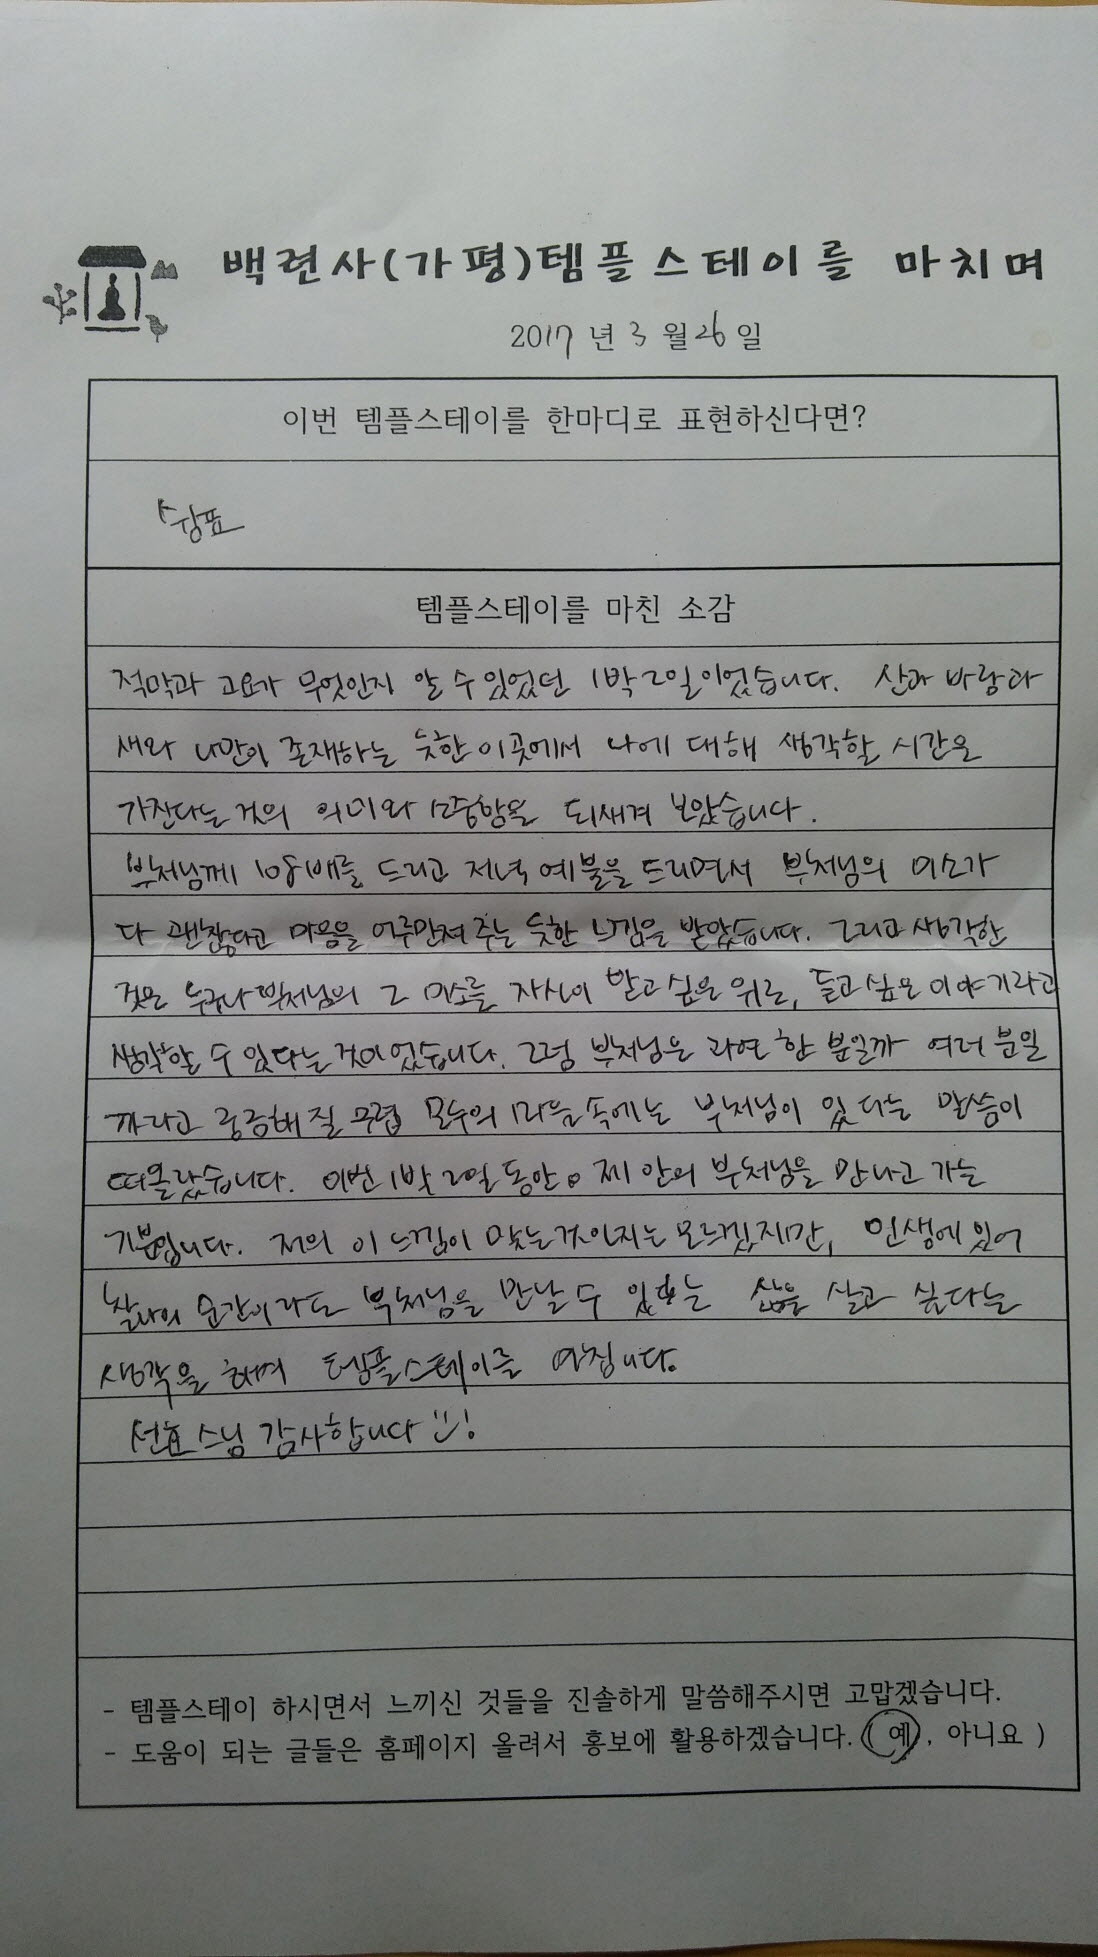 백련사(가평)템플스테이를 마치며
2017 년 3 월 26 일
이번 템플스테이를 한마디로 표현하신다면?
쉼표
템플스테이를 마친 소감
적막과 고요가 무엇인지 알 수 있었던 1박 2일이었습니다. 산과 바람과
새와 나만이 존재하는 듯한 이곳에서 나에 대해 생각할 시간을
가진다는 것의 의미와 소중함을 되새겨 보았습니다.
부처님께 108배를 드리고 저녁 예불을 드리면서 부처님의 미소가
다 괜찮다고 마음을 어루만져 주는 듯한 느낌을 받았습니다. 그리고 생각한
것은 누구나 부처님의 그 미소를 자신이 받고 싶은 위로, 듣고 싶은 이야기라고
생각할 수 있다는 것이었습니다. 그럼 부처님은 과연 한 분일까 여러 분일
까라고 궁금해질 무렵 모두의 마음 속에는 부처님이 있다는 말씀이
떠올랐습니다. 이번 1박 2일 동안 제 안의 부처님을 만나고 가는
기분입니다. 저의 이 느낌이 맞는 것인지는 모르겠지만, 인생에 있어
찰나의 순간이라도 부처님을 만날 수 있는 삶을 살고 싶다는
생각을 하며 템플스테이를 마칩니다.
선효스님 감사합니다 :)!
- 템플스테이 하시면서 느끼신 것들을 진솔하게 말씀해주시면 고맙겠습니다.
- 도움이 되는 글들은 홈페이지 올려서 홍보에 활용하겠습니다. ( 예 , 아니요 )